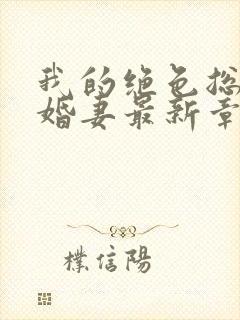 我的绝色总
婚妻最新章
樸信陽